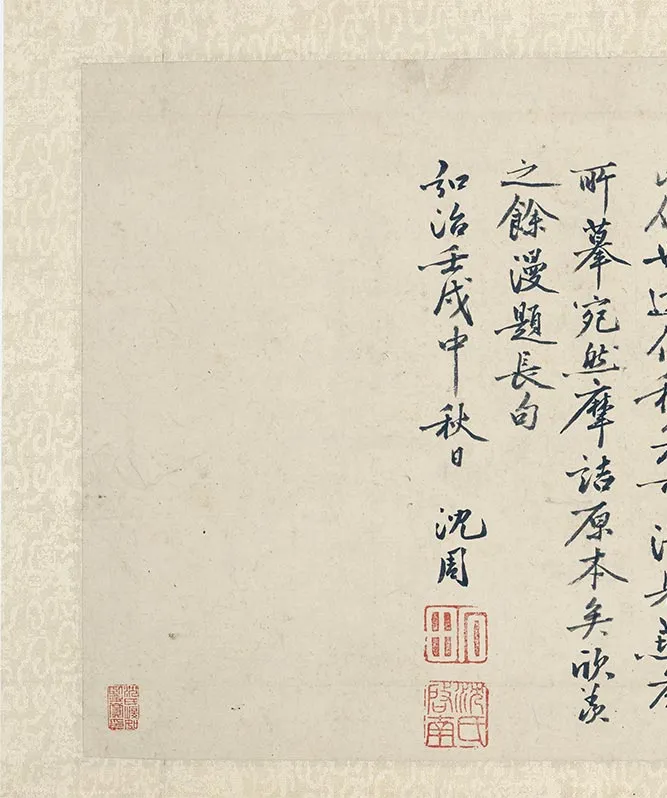 所摹宛然摩詰原本矣欣羨
之餘漫題長句
弘治壬戌中秋日 沈周
石田
沈氏啓南